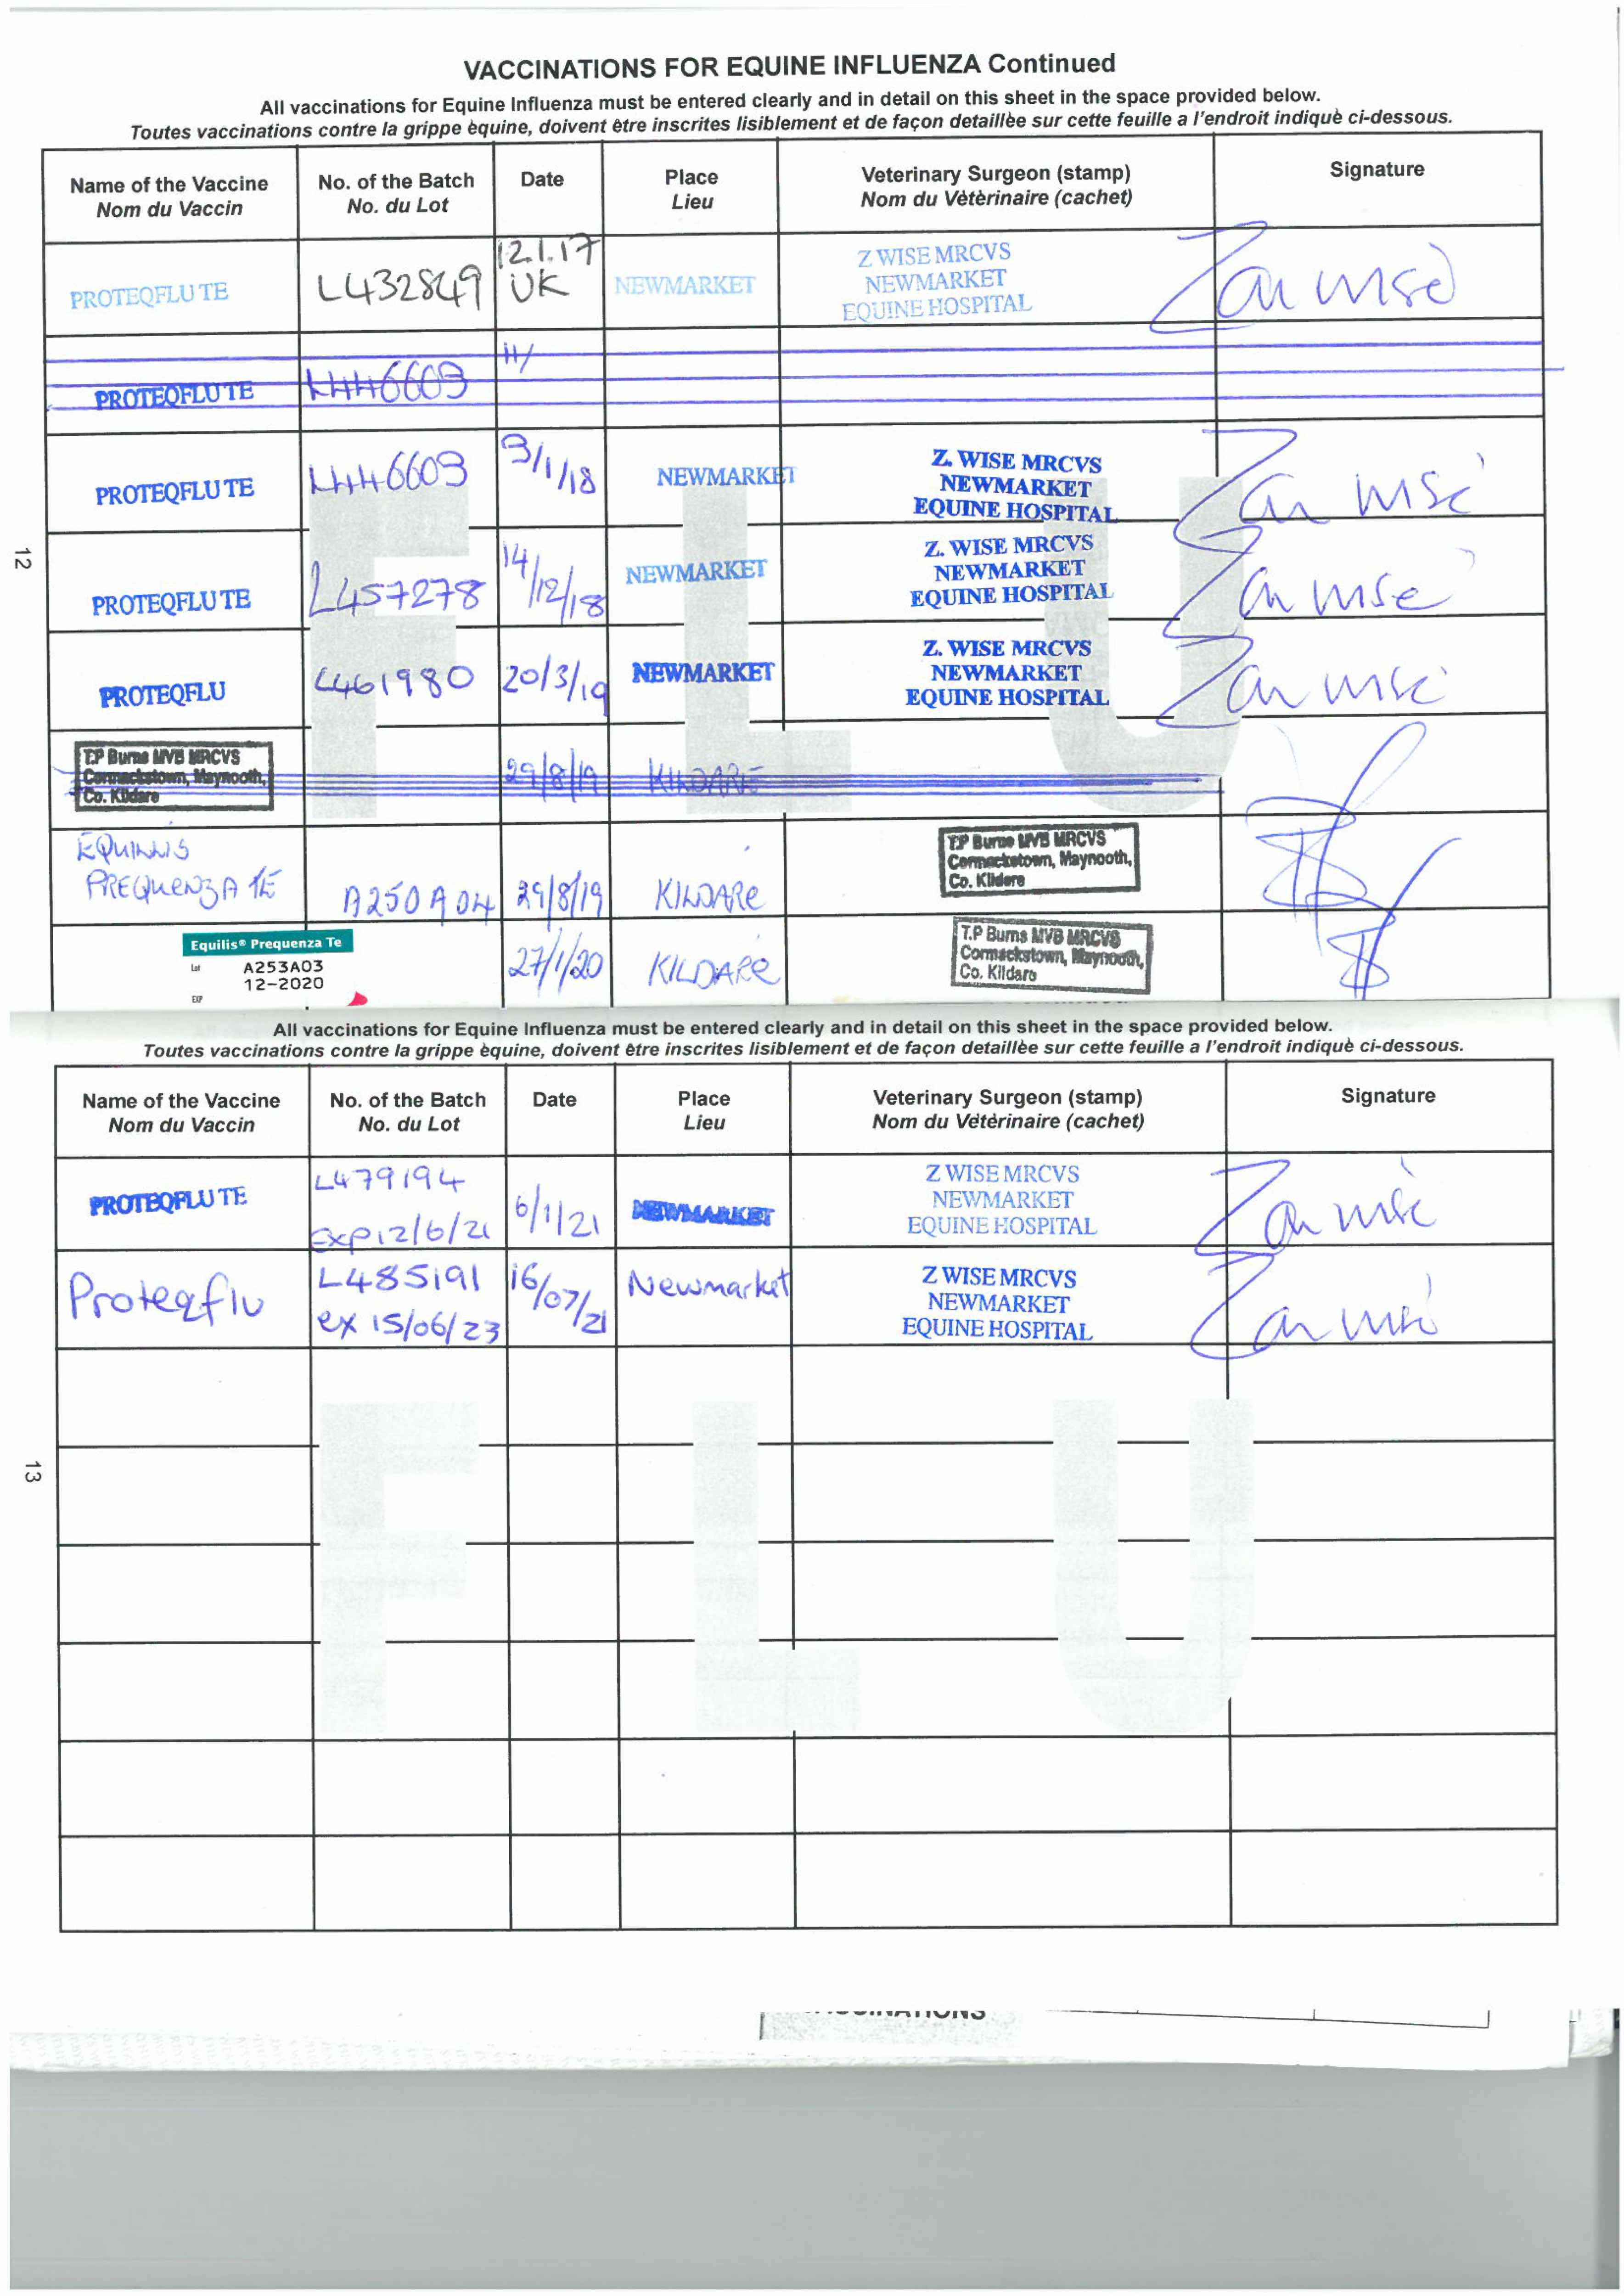 VACCINATIONS FOR EQUINE INFLUENZA Continued
All vaccinations for Equine Influenza must be entered clearly and in detail on this sheet in the space provided below.
Toutes vaccinations contre la grippe èquine, doivent être inscrites lisiblement et de façon detaillèe sur cette feuille a l'endroit indiquè ci-dessous.
Name of the Vaccine
Nom du Vaccin
No. of the Batch
No. du Lot
Date
Place
Lieu
Veterinary Surgeon (stamp)
Nom du Vètèrinaire (cachet)
Signature
PROTEQFLU TE
L432849
12.1.17
UK
NEWMARKET
Z WISE MRCVS
NEWMARKET
EQUINE HOSPITAL
PROTEQFLU TE
L446603
11/
PROTEQFLU TE
L446603
3/1/18
NEWMARKET
Z. WISE MRCVS
NEWMARKET
EQUINE HOSPITAL
PROTEQFLU TE
L457278
14/12/18
NEWMARKET
Z. WISE MRCVS
NEWMARKET
EQUINE HOSPITAL
PROTEQFLU
L461980
20/3/19
NEWMARKET
Z. WISE MRCVS
NEWMARKET
EQUINE HOSPITAL
T.P Burns MVB MRCVS
Cormackstown, Maynooth,
Co. Kildare
29/8/19
KILDARE
EQUILLIS
PREQUENZA TE
A250A04
29/8/19
KILDARE
T.P Burns MVB MRCVS
Cormackstown, Maynooth,
Co. Kildare
Equilis® Prequenza Te
Lot A253A03
12-2020
EXP
27/1/20
KILDARE
T.P Burns MVB MRCVS
Cormackstown, Maynooth,
Co. Kildare
FLU
12
All vaccinations for Equine Influenza must be entered clearly and in detail on this sheet in the space provided below.
Toutes vaccinations contre la grippe èquine, doivent être inscrites lisiblement et de façon detaillèe sur cette feuille a l'endroit indiquè ci-dessous.
Name of the Vaccine
Nom du Vaccin
No. of the Batch
No. du Lot
Date
Place
Lieu
Veterinary Surgeon (stamp)
Nom du Vètèrinaire (cachet)
Signature
PROTEQFLU TE
L479194
Exp 12/6/21
6/1/21
NEWMARKET
Z WISE MRCVS
NEWMARKET
EQUINE HOSPITAL
Proteqflu
L485191
ex 15/06/23
16/07/21
Newmarket
Z WISE MRCVS
NEWMARKET
EQUINE HOSPITAL
FLU
13